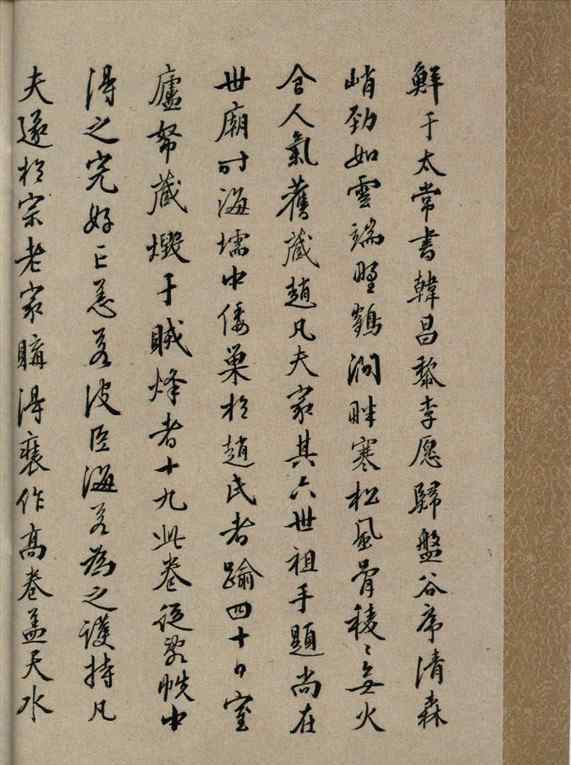 鮮于太常書韓昌黎李愿歸盤谷序清森
峭勁如雲端野鶴澗畔寒松風骨稜〻無火
食人氣舊藏趙凡夫家其六世祖手題尚在
世廟时海壖中倭巢於趙氏者踰四十日室
廬帑藏燬于賊烽者十九此卷從敗帙中
得之完好亡恙若波臣海若為之護持凡
夫遂於宗老家購得裝作高卷盖天水